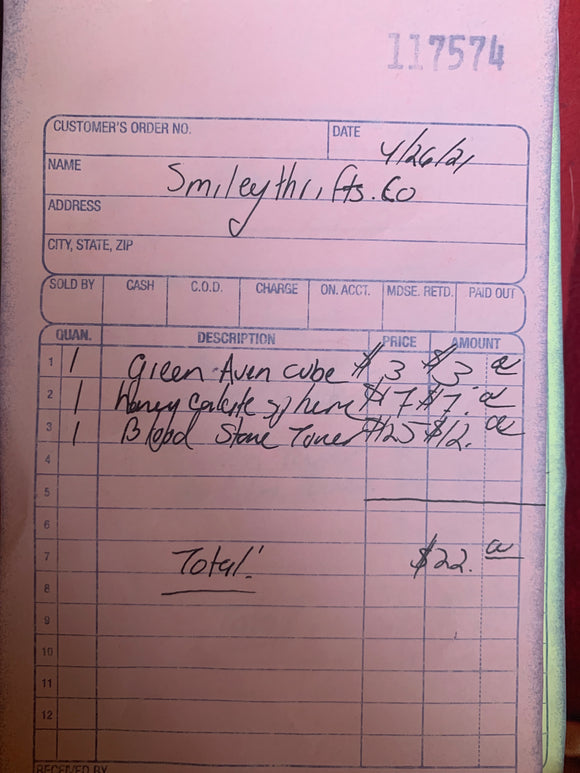 117574
CUSTOMER'S ORDER NO. DATE 4/26/21
NAME Smileythrifts.Co
ADDRESS
CITY, STATE, ZIP
SOLD BY CASH C.O.D. CHARGE ON. ACCT. MDSE. RETD. PAID OUT
QUAN. DESCRIPTION PRICE AMOUNT
1 1 Green Aven cube $3 $3. 00
2 1 honey calcite sphere $7 $7. 00
3 1 Blood Stone Tower $12. 00
4
5
6
7 Total: $22. 00
8
9
10
11
12
RECEIVED BY